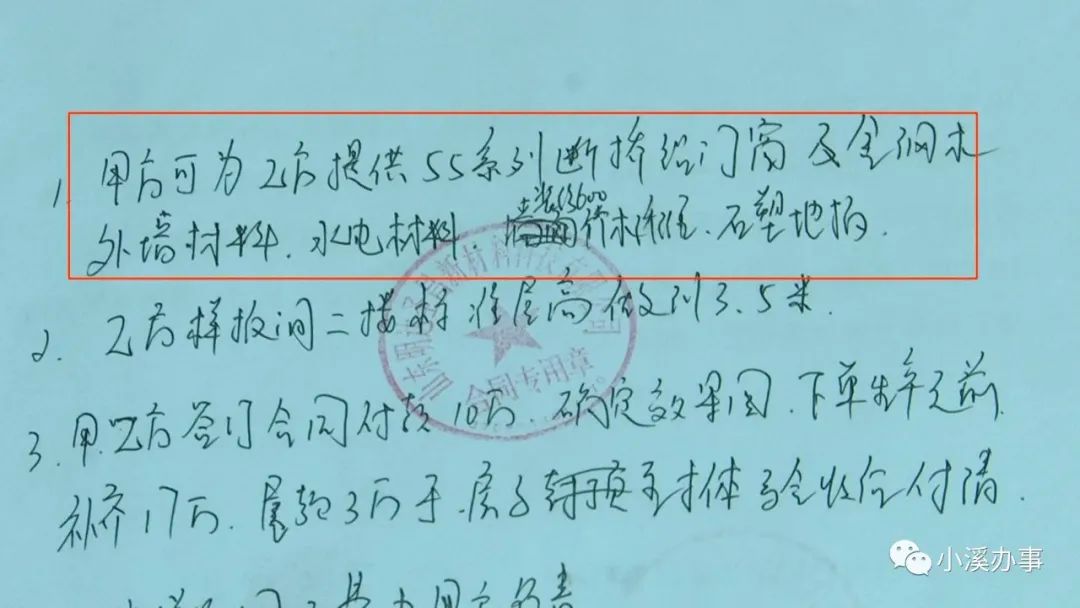 1. 甲方可为乙方提供55系列断桥铝门窗及金钢木
外墙材料.水电材料 价标准.石塑地板.
2. 乙方样板间二楼标准层高做到3.5米.
3. 甲.乙方签订合同付款10万.确定效果图.下单生产之前.
补齐17万.尾款3万于.房子主体验收后付清.
合同专用章
小溪办事